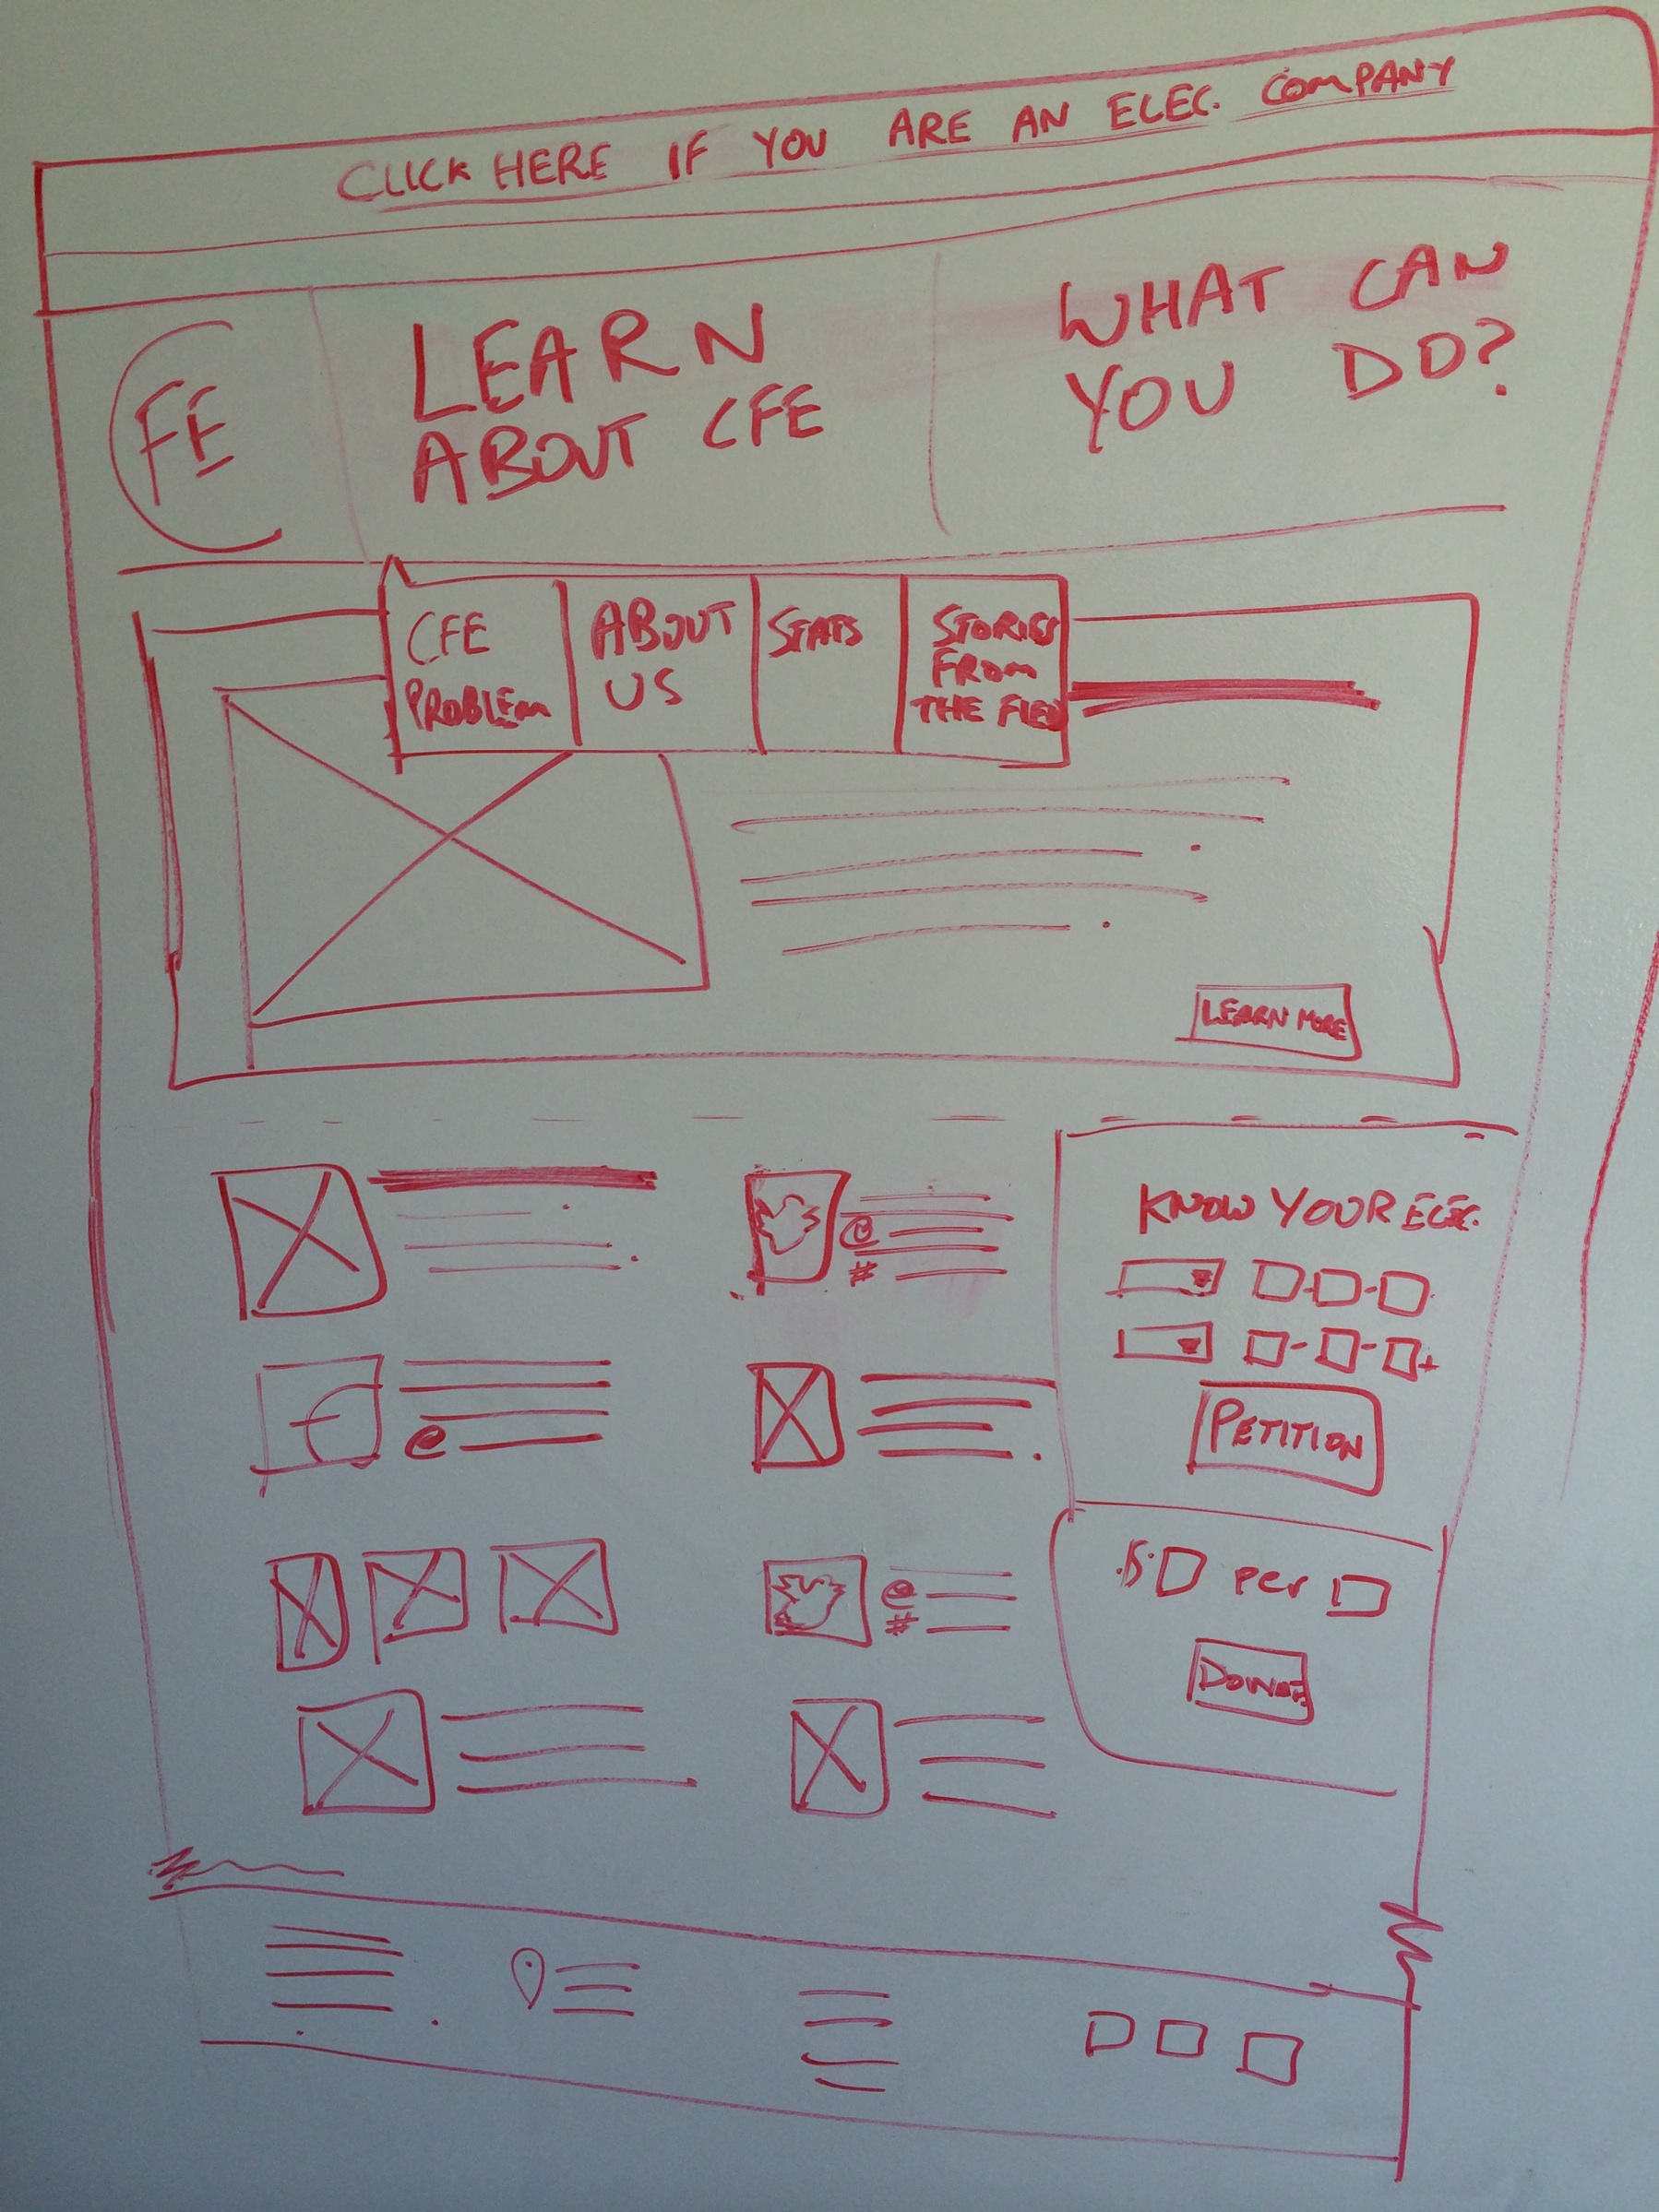 CLICK HERE IF YOU ARE AN ELEC. COMPANY
CFE
LEARN
ABOUT CFE
WHAT CAN
YOU DO?
CFE
PROBLEM
ABOUT
US
STATS
STORIES
FROM
THE FIELD
LEARN MORE
KNOW YOUR ELEC.
@
#
@
PETITION
@
#
per
DONATE